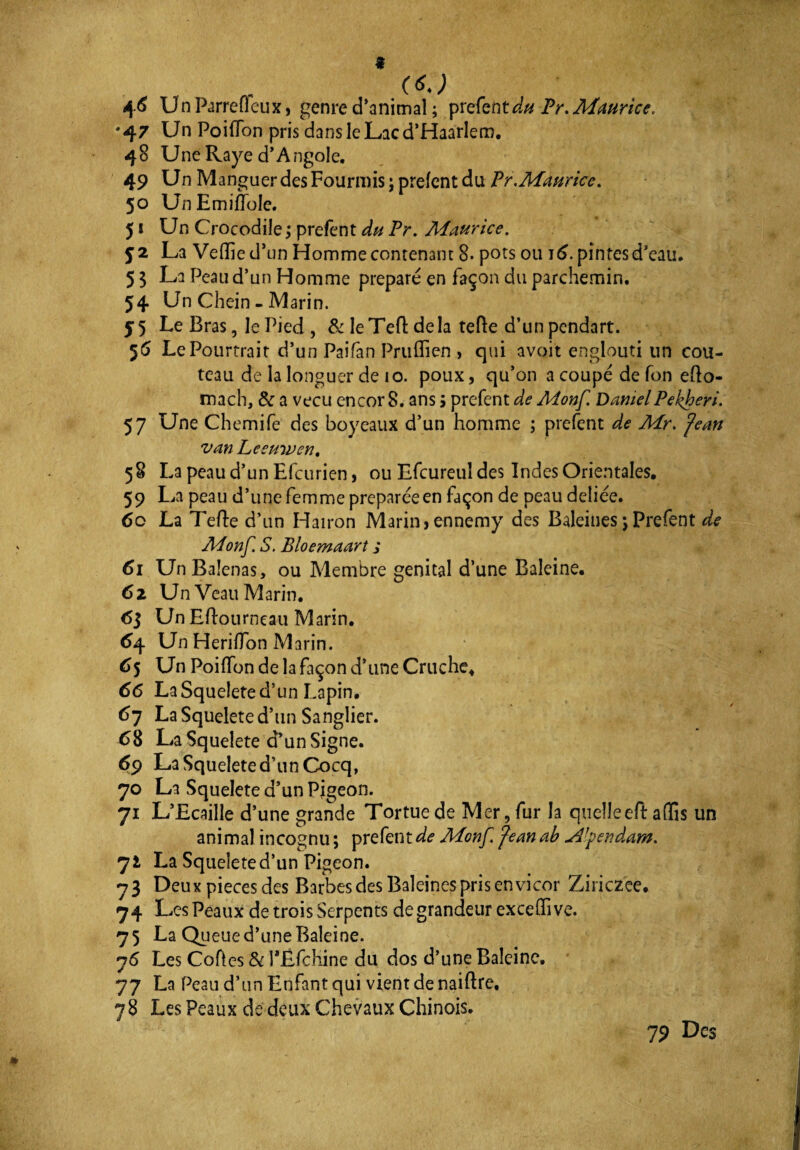 (6.)
46 Un Parreſſeux, genre d'animal; preſent du Pr. Maurice.
47 Un Poiſſon pris dans le Lac d'Haarlem.
48 Une Raye d'Angole.
49 Un Manguer des Fourmis; preſent du Pr. Maurice.
50 Un Emiſſole.
51 Un Crocodile; preſent du Pr. Maurice.
52 La Veſſie d'un Homme contenant 8. pots ou 16. pintes d'eau.
53 La Peau d'un Homme preparé en façon du parchemin.
54 Un Chein-Marin.
55 Le Bras, le Pied, & le Teſt de la teſte d'un pendart.
56 Le Pourtrait d'un Paiſan Pruſſien, qui avoit englouti un cou-
teau de la longuer de 10. poux, qu'on a coupé de ſon eſto-
mach, & a vecu encor 8. ans; preſent de Monſ. Daniel Pekheri.
57 Une Chemiſe des boyeaux d'un homme; preſent de Mr. Jean
van Leeuwen.
58 La peau d'un Eſcurien, ou Eſcureul des Indes Orientales.
59 La peau d'une femme preparée en façon de peau deliée.
60 La Teſte d'un Hairon Marin, ennemy des Baleines; Preſent de
Monſ. S. Bloemaart;
61 Un Balenas, ou Membre genital d'une Baleine.
62 Un Veau Marin.
63 Un Eſtourneau Marin.
64 Un Heriſſon Marin.
65 Un Poiſſon de la façon d'une Cruche.
66 La Squelete d'un Lapin.
67 La Squelete d'un Sanglier.
68 La Squelete d'un Signe.
69 La Squelete d'un Cocq,
70 La Squelete d'un Pigeon.
71 L'Ecaille d'une grande Tortue de Mer, ſur la quelle eſt aſſis un
animal incognu; preſent de Monſ. Jean ab Alpendam.
72 La Squelete d'un Pigeon.
73 Deux pieces des Barbes des Baleines pris envicor Ziriczée.
74 Les Peaux de trois Serpents de grandeur exceſſive.
75 La Queue d'une Baleine.
76 Les Coſtes & l'Eſchine du dos d'une Baleine.
77 La Peau d'un Enfant qui vient de naiſtre.
78 Les Peaux de deux Chevaux Chinois.
79 Des